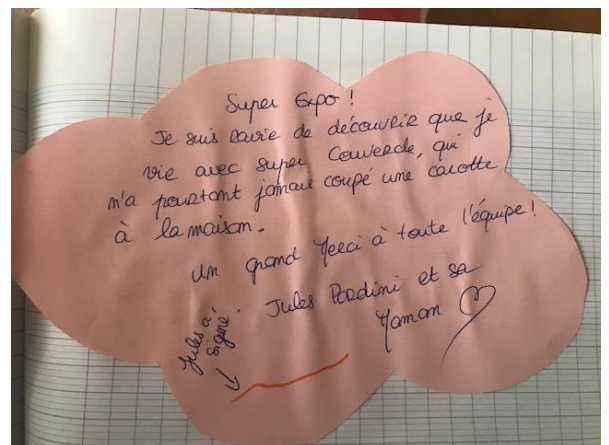 Super Expo !
Je suis ravie de découvrir que je
vie avec super Couvercle, qui
m'a pourtant jamais coupé une carotte
à la maison.
Un grand Merci à toute l'équipe !
Jules Pardini et sa
Maman
Jules a
signé.